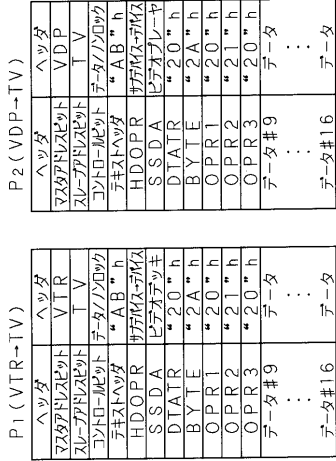 P1(VTR→TV)
ヘッダ ヘッダ
マスタアドレスビット VTR
スレーブアドレスビット TV
コントロールビット データ/ノンロック
テキストヘッダ “AB”h
HDOPR サブデバイス→デバイス
SSDA ビデオデッキ
DTATR “20”h
BYTE “2A”h
OPR1 “20”h
OPR2 “21”h
OPR3 “20”h
データ#9 データ
⋮ ⋮
データ#16 データ
P2(VDP→TV)
ヘッダ ヘッダ
マスタアドレスビット VDP
スレーブアドレスビット TV
コントロールビット データ/ノンロック
テキストヘッダ “AB”h
HDOPR サブデバイス→デバイス
SSDA ビデオプレーヤ
DTATR “20”h
BYTE “2A”h
OPR1 “20”h
OPR2 “21”h
OPR3 “20”h
データ#9 データ
⋮ ⋮
データ#16 データ